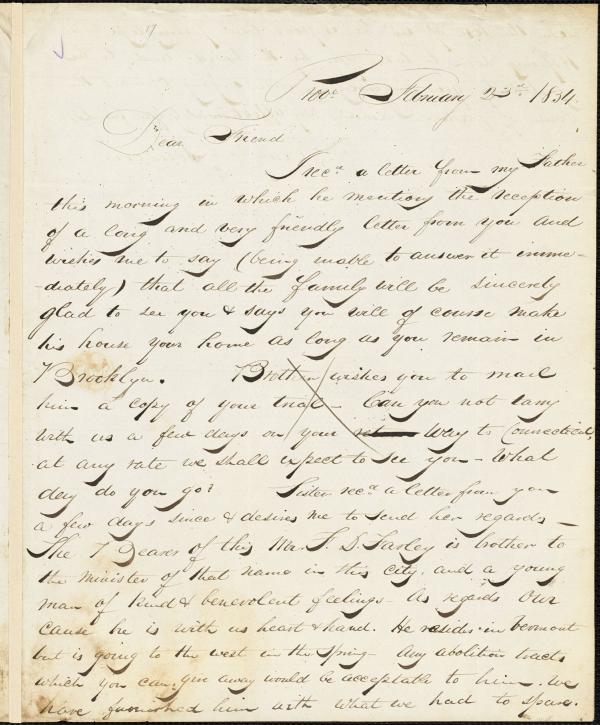 Prov. February 23rd. 1834.
Dear Friend
I recd. a letter from my Father
this morning in which he mentions the reception
of a long and very friendly letter from you and
wishes me to say (being unable to answer it imme-
-diately) that all the family will be sincerely
glad to see you & says you will of course make
his house your home as long as you remain in
Brooklyn. Brother wishes you to mail
him a copy of your trial - Can you not tarry
with us a few days on your way to Connecticut,
at any rate we shall expect to see you - What
day do you go? Sister recd. a letter from you
a few days since & desires me to send her regards -
The Bearer of this Mr. F. D. Farley is brother to
the minister of that name in this city, and a young
man of kind & benevolent feelings - As regards our
cause he is with us heart & hand. He resides in Vermont
but is going to the west in the Spring - Any abolition tracts
which you can give away would be acceptable to him. We
have furnished him with what we had to spare.